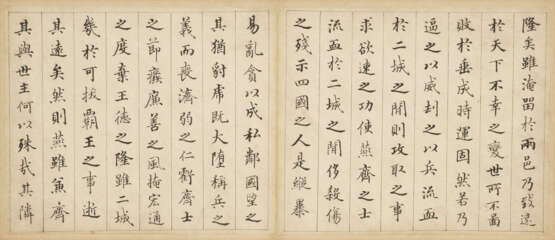 隆矣雖淹留於兩邑乃致速
於天下不幸之變世所不圖
敗於垂成時運固然若乃
逼之以威劫之以兵流血
於二城之閒則攻取之事
求欲速之功使燕齊之士
流血於二城之閒侈殺傷
之殘示四國之人是縱暴
易亂貪以成私鄰國望之
其猶豺虎既大墮稱兵之
義而喪濟弱之仁虧齊士
之節廢廉善之風掩宏通
之度棄王德之隆雖二城
幾於可拔霸王之事逝
其遠矣然則燕雖兼齊
其與世主何以殊哉其隣